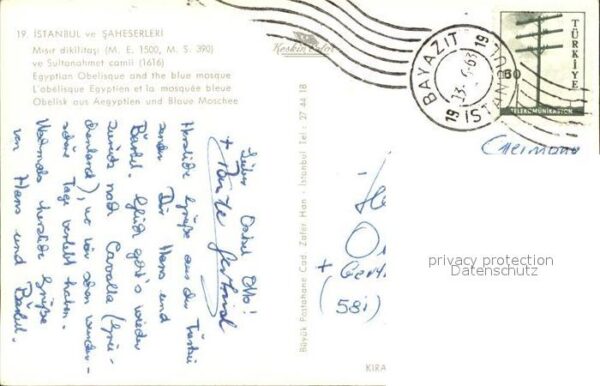 19. İSTANBUL ve ŞAHESERLERİ
Mısır dikilitaşı (M. E. 1500, M. S. 390)
ve Sultanahmet camii (1616)
Egyptian Obelisque and the blue mosque
L'obélisque Egyptien et la mosquée bleue
Obelisk aus Aegyptien und Blaue Moschee
Keskin Color
BAYAZIT
İSTANBUL
19 13. 63 19
60
TÜRKİYE
TELEKOMÜNİKASYON
Büyük Postahane Cad. Zafer Han - İstanbul Tel.: 27 44 18
Lieber Onkel Otto!
+ Tante Gertrud
Herzliche Grüße aus der Türkei
senden Dir Hans und
Bärbel. Gleich geht's wieder
zurück nach Cavalla (Grie-
chenland), wo wir schon wunder-
schöne Tage verlebt haben.
Nochmals herzliche Grüße
von Hans und Bärbel.
(58i)
privacy protection
Datenschutz
KIRA